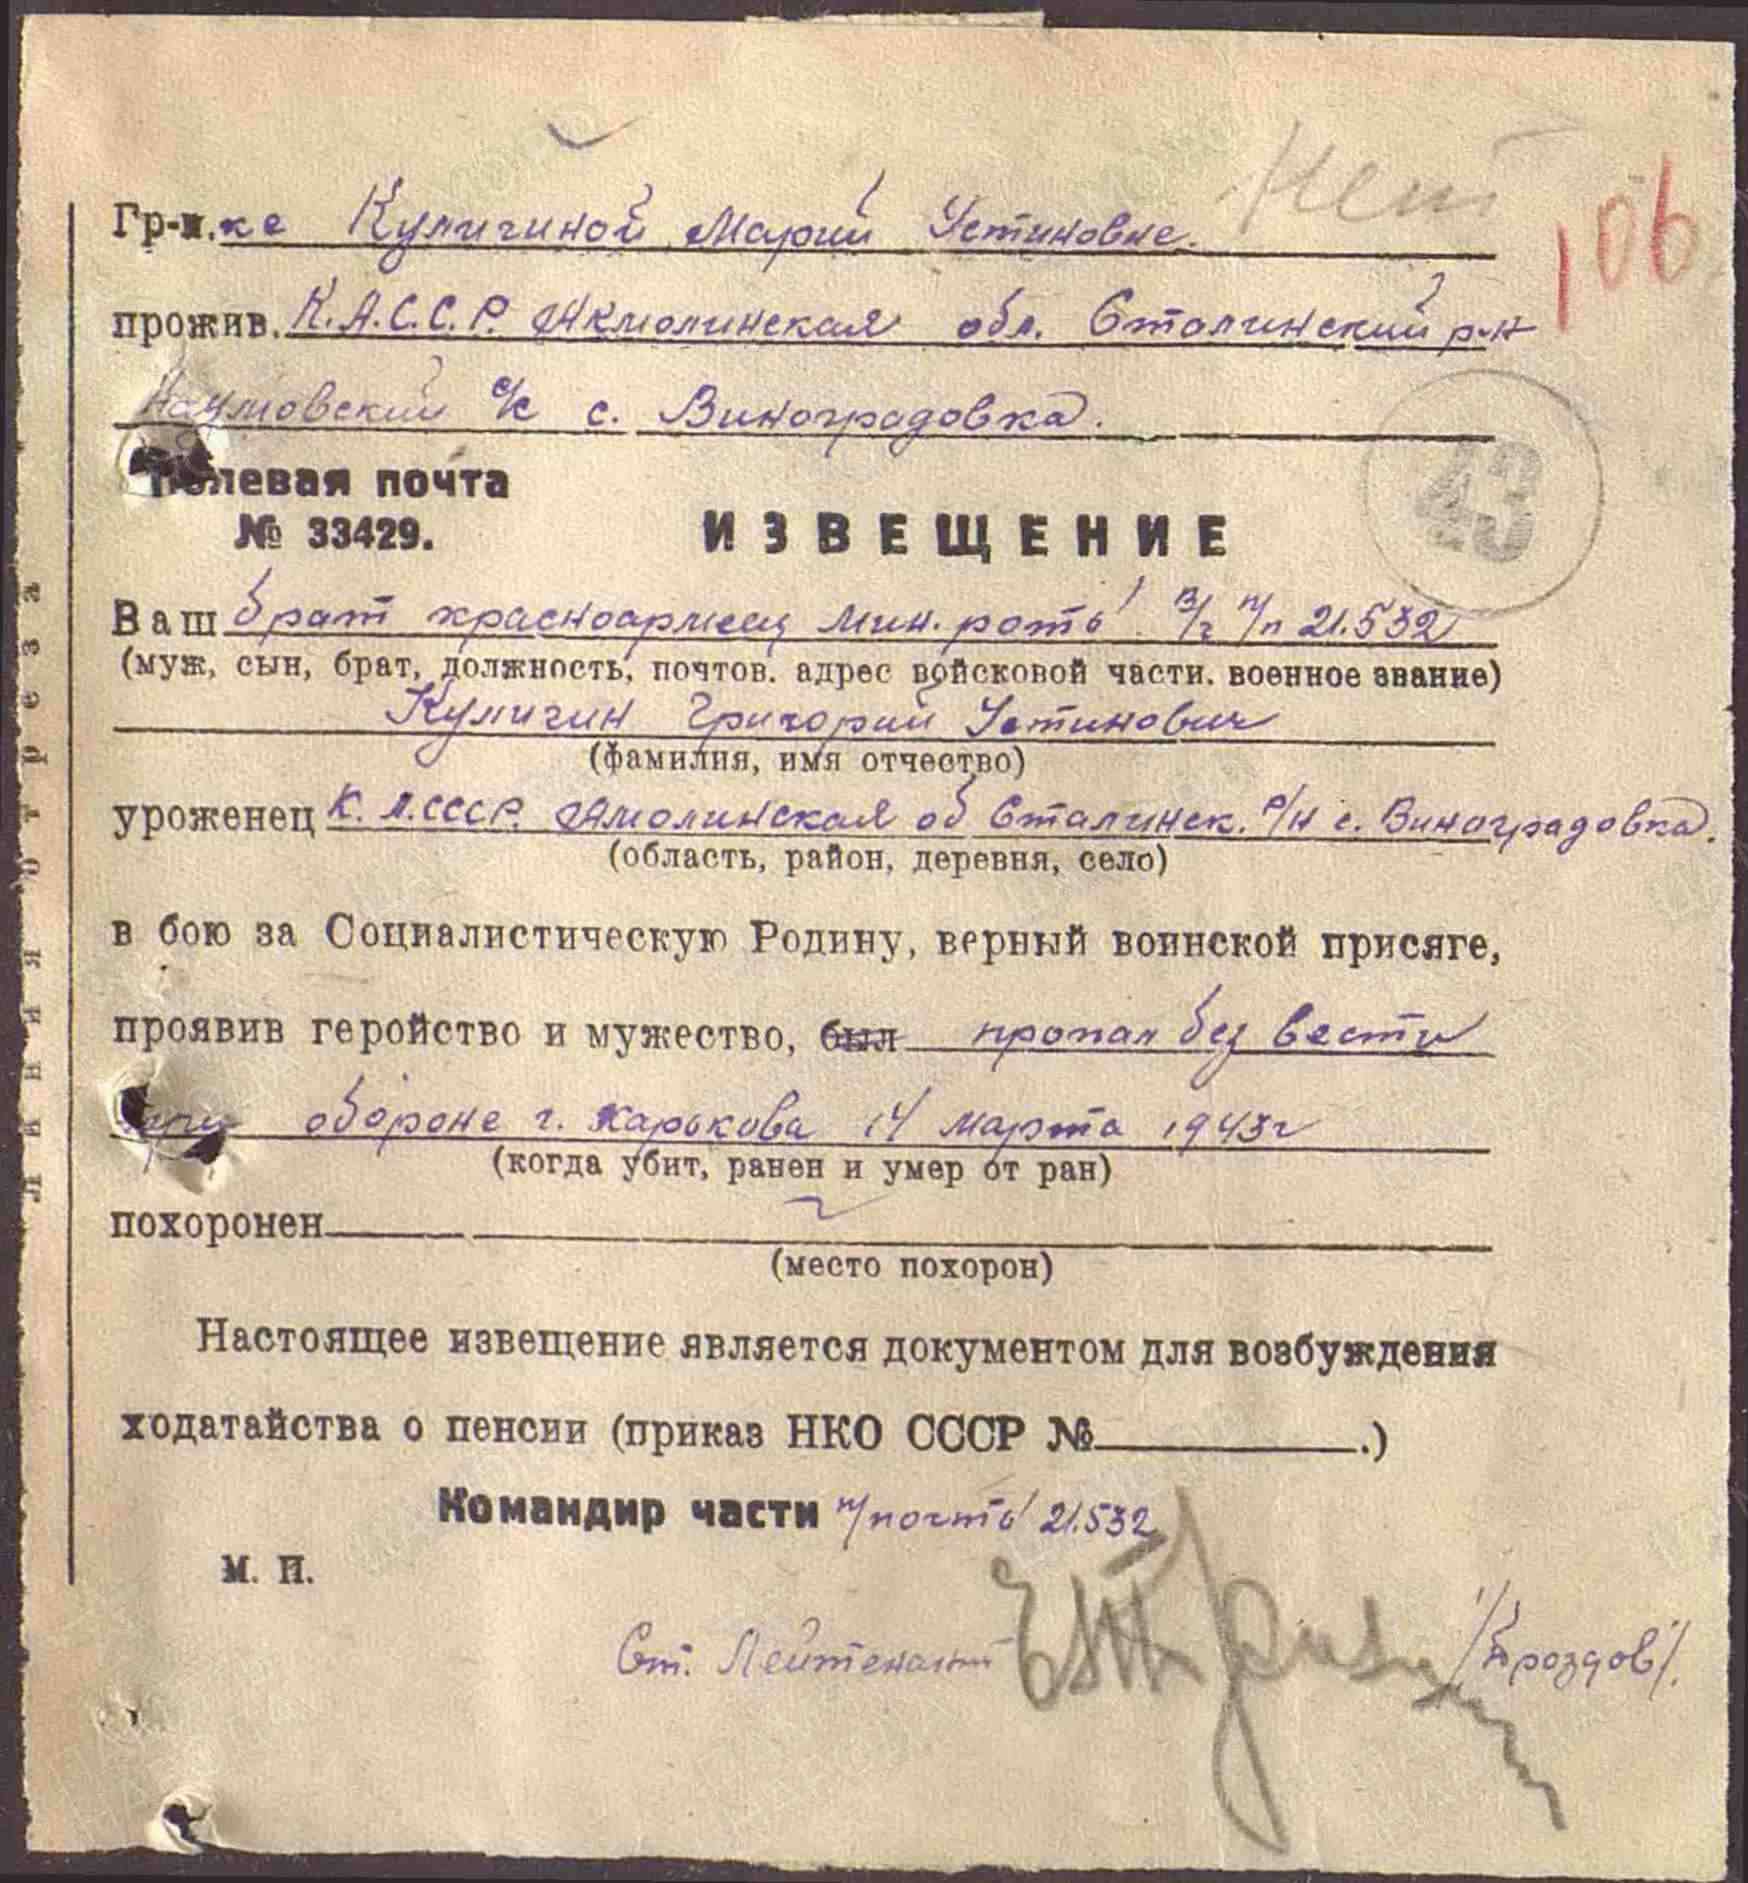 Нет
106
Гр-н.ке Куличиной Марии Устиновне.
прожив. К.А.С.С.Р. Акмолинская обл. Сталинский р-н
Наумовский с/с с. Виноградовка.
Полевая почта
№ 33429.
43
ИЗВЕЩЕНИЕ
Ваш брат красноармеец мин. роты в/ч п/п 21.532
(муж, сын, брат, должность, почтов. адрес войсковой части. военное звание)
Куличин Григорий Устинович
(фамилия, имя отчество)
уроженец К.А.СССР. Амолинская об Сталинск. р/н с. Виноградовка.
(область, район, деревня, село)
в бою за Социалистическую Родину, верный воинской присяге,
проявив геройство и мужество, был пропал без вести
при обороне г. Харькова 14 марта 1943г
(когда убит, ранен и умер от ран)
похоронен
(место похорон)
Настоящее извещение является документом для возбуждения
ходатайства о пенсии (приказ НКО СССР № .)
Командир части п/почты 21.532
М. П.
Ст. Лейтенант /Дроздов/.
линия отреза